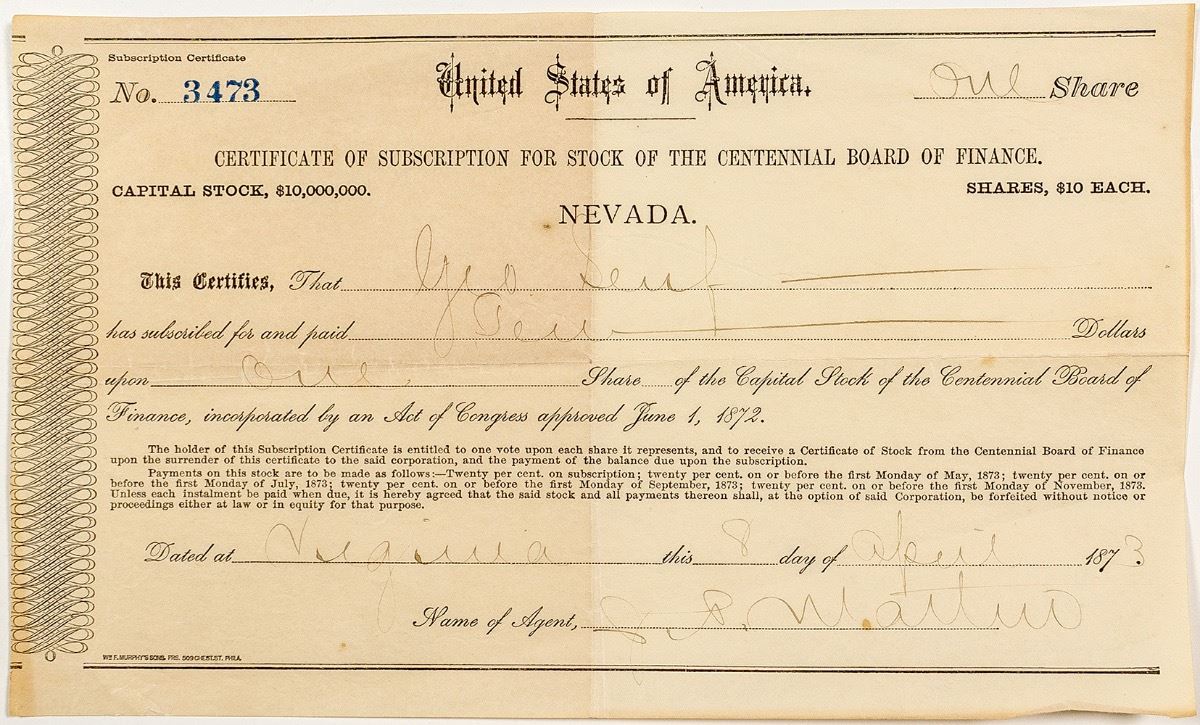 Subscription Certificate
No. 3473
United States of America.
One Share
CERTIFICATE OF SUBSCRIPTION FOR STOCK OF THE CENTENNIAL BOARD OF FINANCE.
CAPITAL STOCK, $10,000,000.
SHARES, $10 EACH.
NEVADA.
This Certifies, That Geo
has subscribed for and paid Ten Dollars
upon One Share of the Capital Stock of the Centennial Board of
Finance, incorporated by an Act of Congress approved June 1, 1872.
The holder of this Subscription Certificate is entitled to one vote upon each share it represents, and to receive a Certificate of Stock from the Centennial Board of Finance
upon the surrender of this certificate to the said corporation, and the payment of the balance due upon the subscription.
Payments on this stock are to be made as follows:—Twenty per cent. on subscription; twenty per cent. on or before the first Monday of May, 1873; twenty per cent. on or
before the first Monday of July, 1873; twenty per cent. on or before the first Monday of September, 1873; twenty per cent. on or before the first Monday of November, 1873.
Unless each instalment be paid when due, it is hereby agreed that the said stock and all payments thereon shall, at the option of said Corporation, be forfeited without notice or
proceedings either at law or in equity for that purpose.
Dated at Virginia this 8 day of April 1873
Name of Agent,
WM F. MURPHY'S SONS, PRS. 509 CHEST. ST. PHILA.